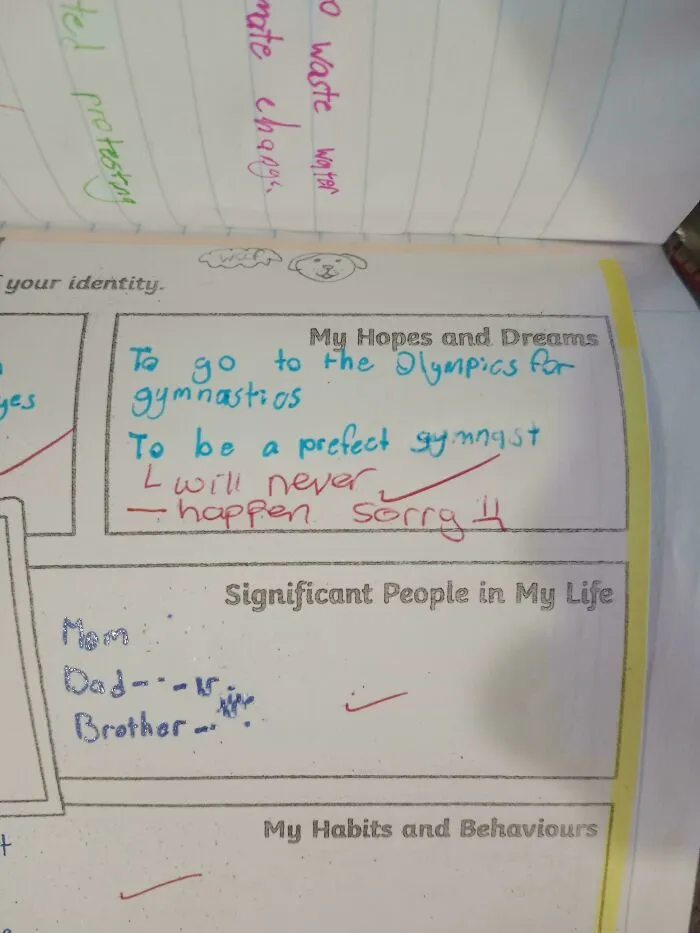 o waste water
mate change.
ted protesting
your identity.
woof
My Hopes and Dreams
To go to the Olympics for
gymnastics
To be a prefect gymnast
will never
happen sorry
yes
Significant People in My Life
Mom
Dad
Brother
My Habits and Behaviours